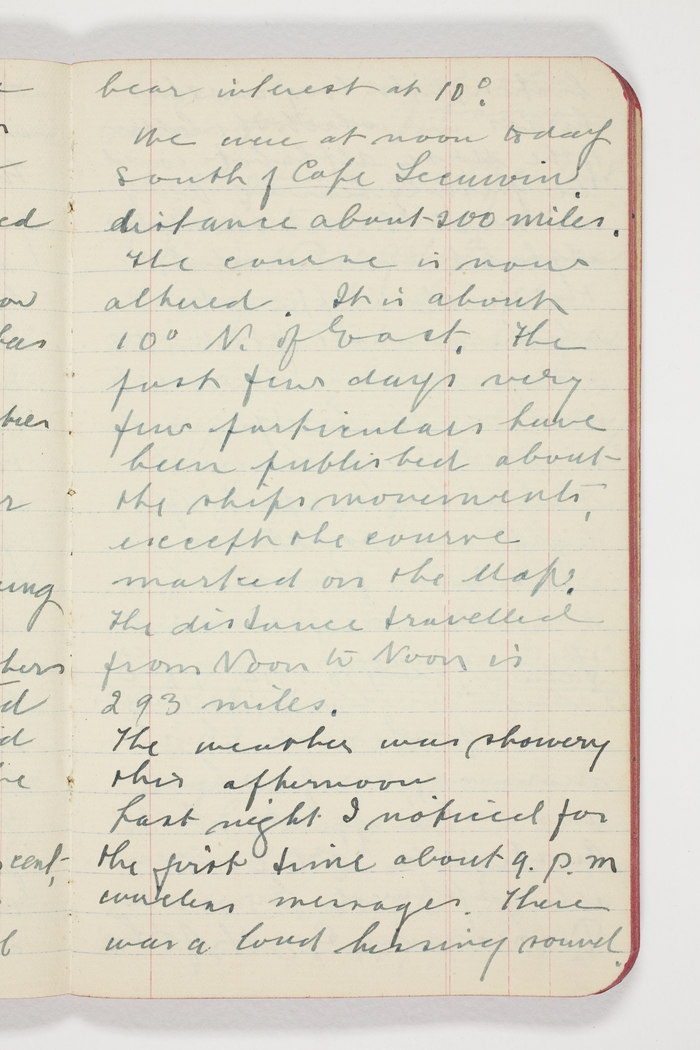 bear interest at 10°.
We were at noon today
south of Cape Leeuwin.
distance about 200 miles.
The course is now
altered. It is about
10° N. of East. The
past few days very
few particulars have
been published about
the ships movements,
except the course
marked on the Map.
The distance travelled
from Noon to Noon is
293 miles.
The weather was showery
this afternoon
Last night I noticed for
the first time about 9. p.m
wireless messages. There
was a loud hissing sound